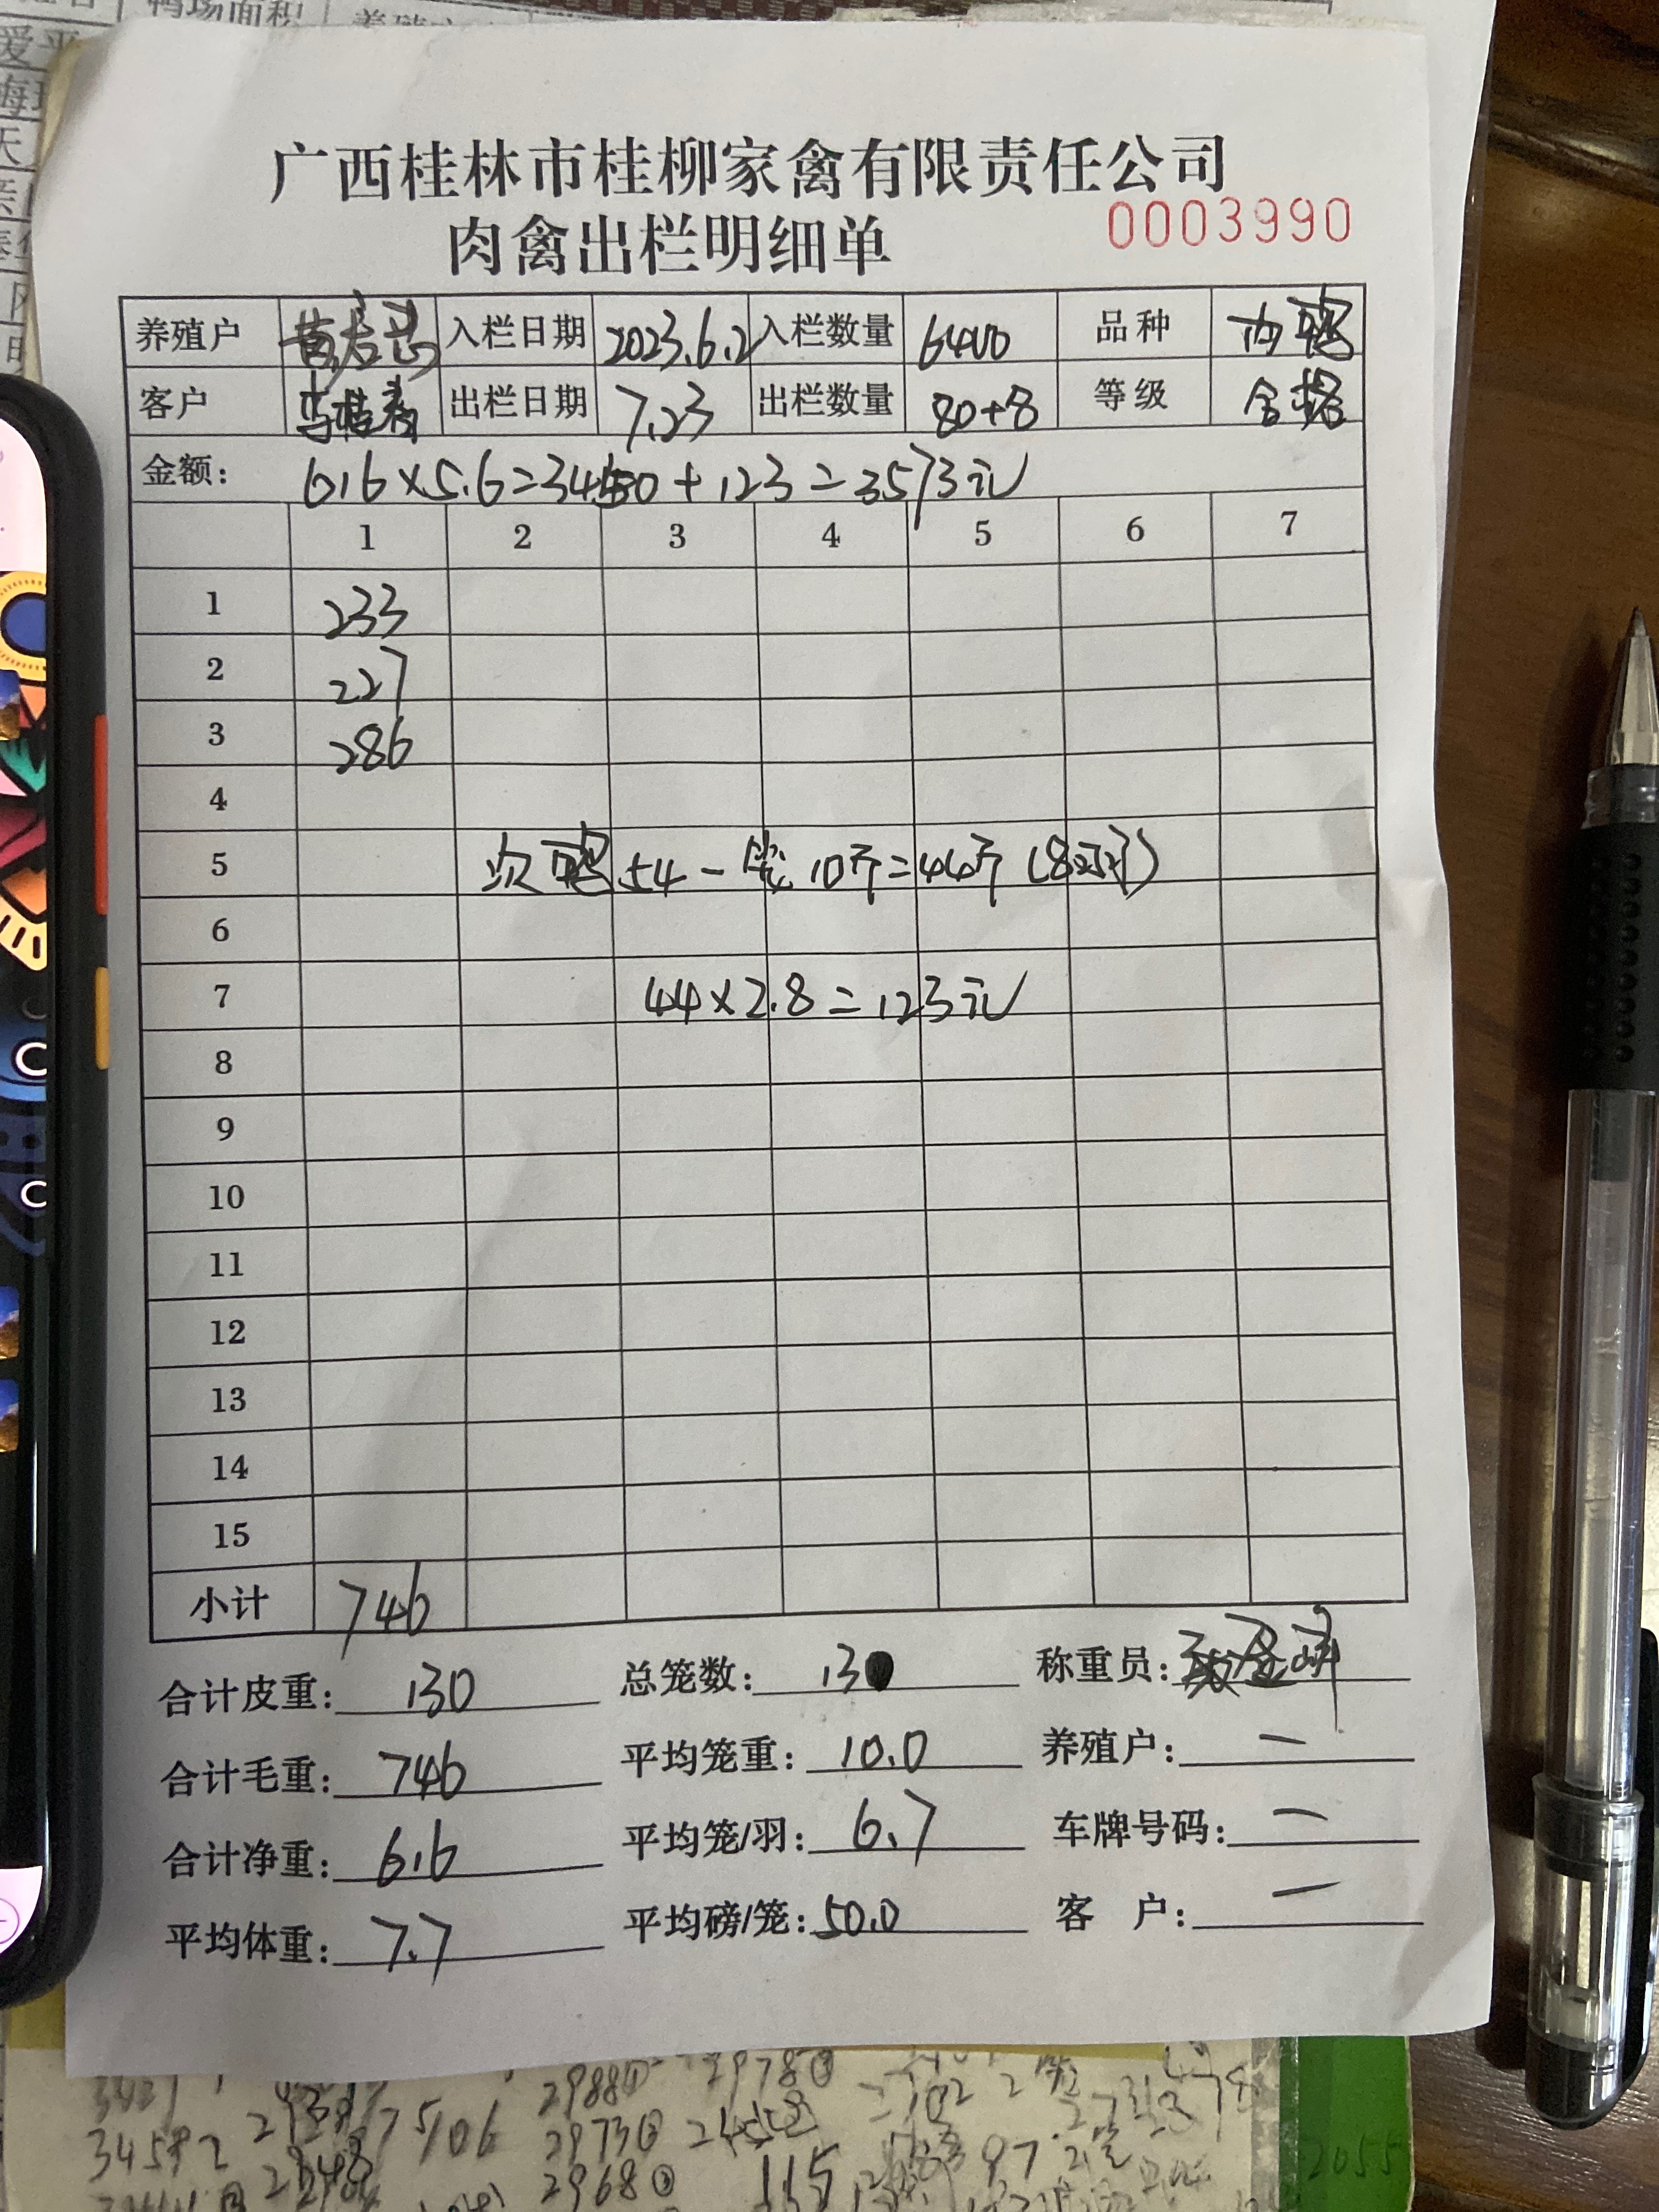 鸭场面积
广西桂林市桂柳家禽有限责任公司
肉禽出栏明细单 0003990
养殖户 入栏日期 2023.6.2 入栏数量 6400 品种 肉鸭
客户 出栏日期 7.23 出栏数量 80+8 等级 合格
金额: 616×5.6=3450+123=3573元
1 2 3 4 5 6 7
1 233
2 227
3 286
4
5 次鸭54-笼10斤=44斤(8羽)
6
7 44×2.8=123元
8
9
10
11
12
13
14
15
小计 746
合计皮重: 130 总笼数: 13 称重员:
合计毛重: 746 平均笼重: 10.0 养殖户: 一
合计净重: 616 平均笼/羽: 6.7 车牌号码: 一
平均体重: 7.7 平均磅/笼: 50.0 客 户: 一
2988 2978
75106 2973
34592 2968 115
2055